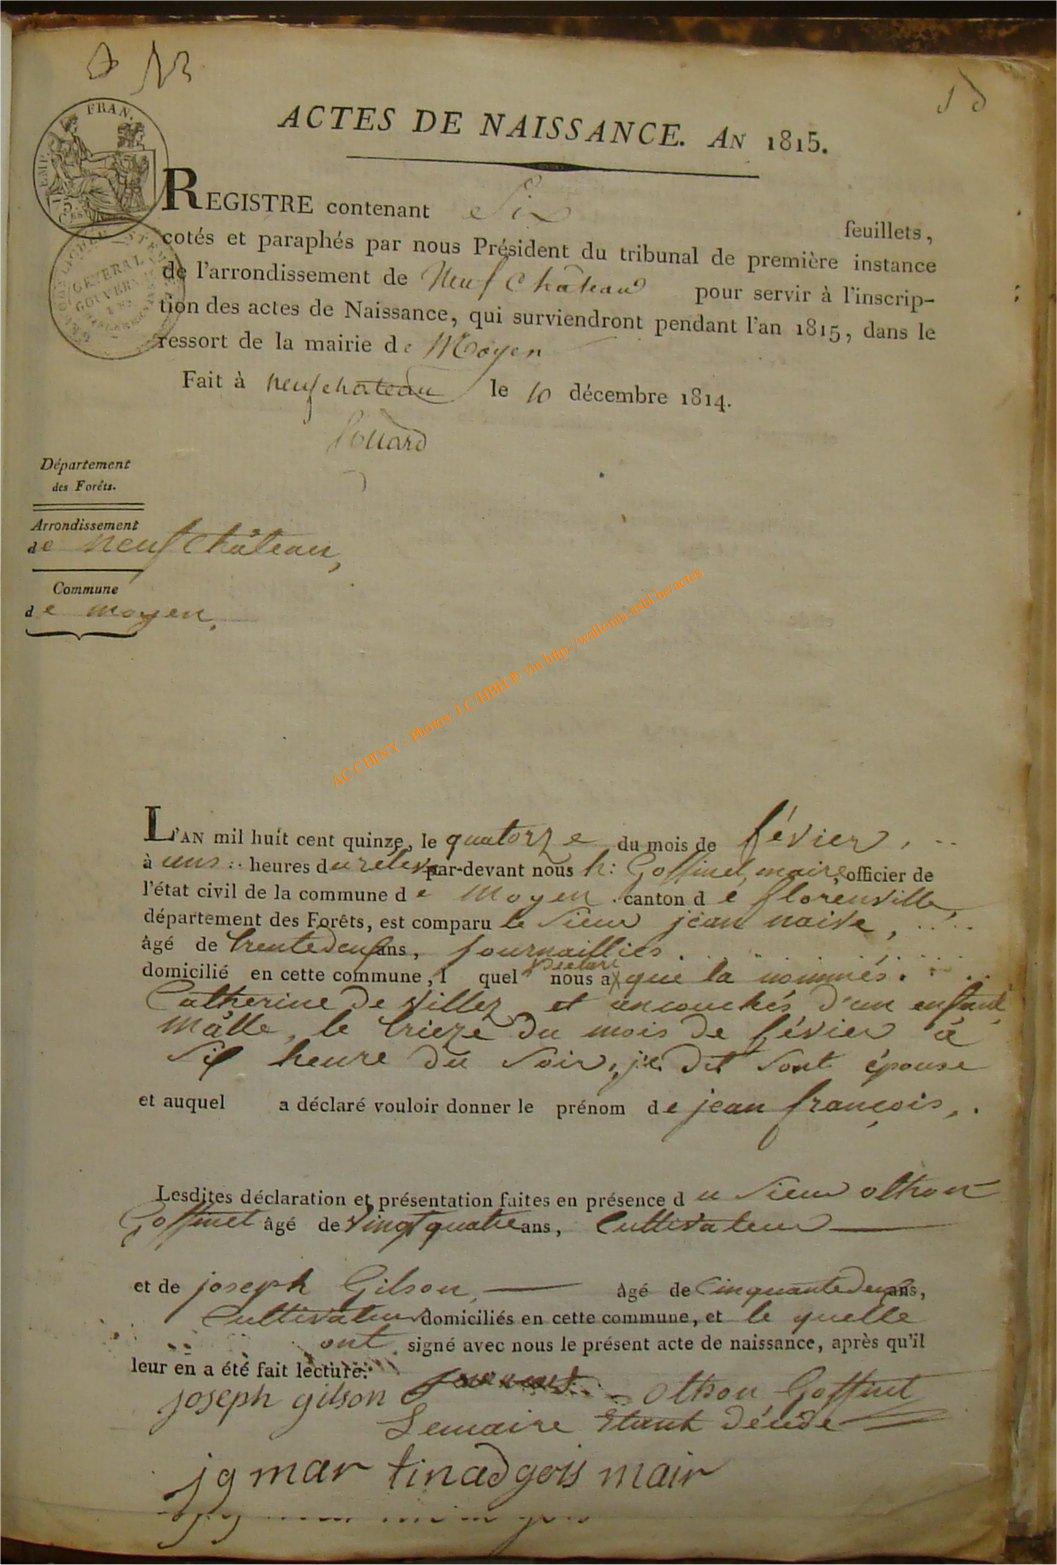 ACTES DE NAISSANCE. AN 1815.
EMP. FRAN.
REGISTRE contenant Six feuillets,
cotés et paraphés par nous Président du tribunal de première instance
de l'arrondissement de Neufchâteau pour servir à l'inscrip-
tion des actes de Naissance, qui surviendront pendant l'an 1815, dans le
ressort de la mairie de Moyen
Fait à neufchateau le 10 décembre 1814.
Département
des Forêts.
Arrondissement
de neufchâteau,
Commune
de moyen.
L'AN mil huit cent quinze, le quatorze du mois de févier,
à uns heures du par-devant nous h: Goffinet, maire, officier de
l'état civil de la commune de moyen canton de florenville,
département des Forêts, est comparu le sieur jean naive,
âgé de trentedeux ans,
domicilié en cette commune, l quel nous a déclaré que la nommés
Catherine de villez et ancouchés d'un enfant
mâlle, le trieze du mois de févier à
six heure du soir, dit sont épouse
et auquel a déclaré vouloir donner le prénom de jean françois,
Lesdites déclaration et présentation faites en présence du sieur othon
Goffinet âgé de vingt quatre ans, Cultivateur
et de joseph Gilson, âgé de Cinquantedeux ans,
Cultivateur domiciliés en cette commune, et le quelle
ont signé avec nous le présent acte de naissance, après qu'il
leur en a été fait lecture.
joseph gilson othon Goffinet
Lemaire Etant décéde
jg martin adgois mair
ACCHINY - Photos J.C HBILR via http://wallonia.asbl.be/actes